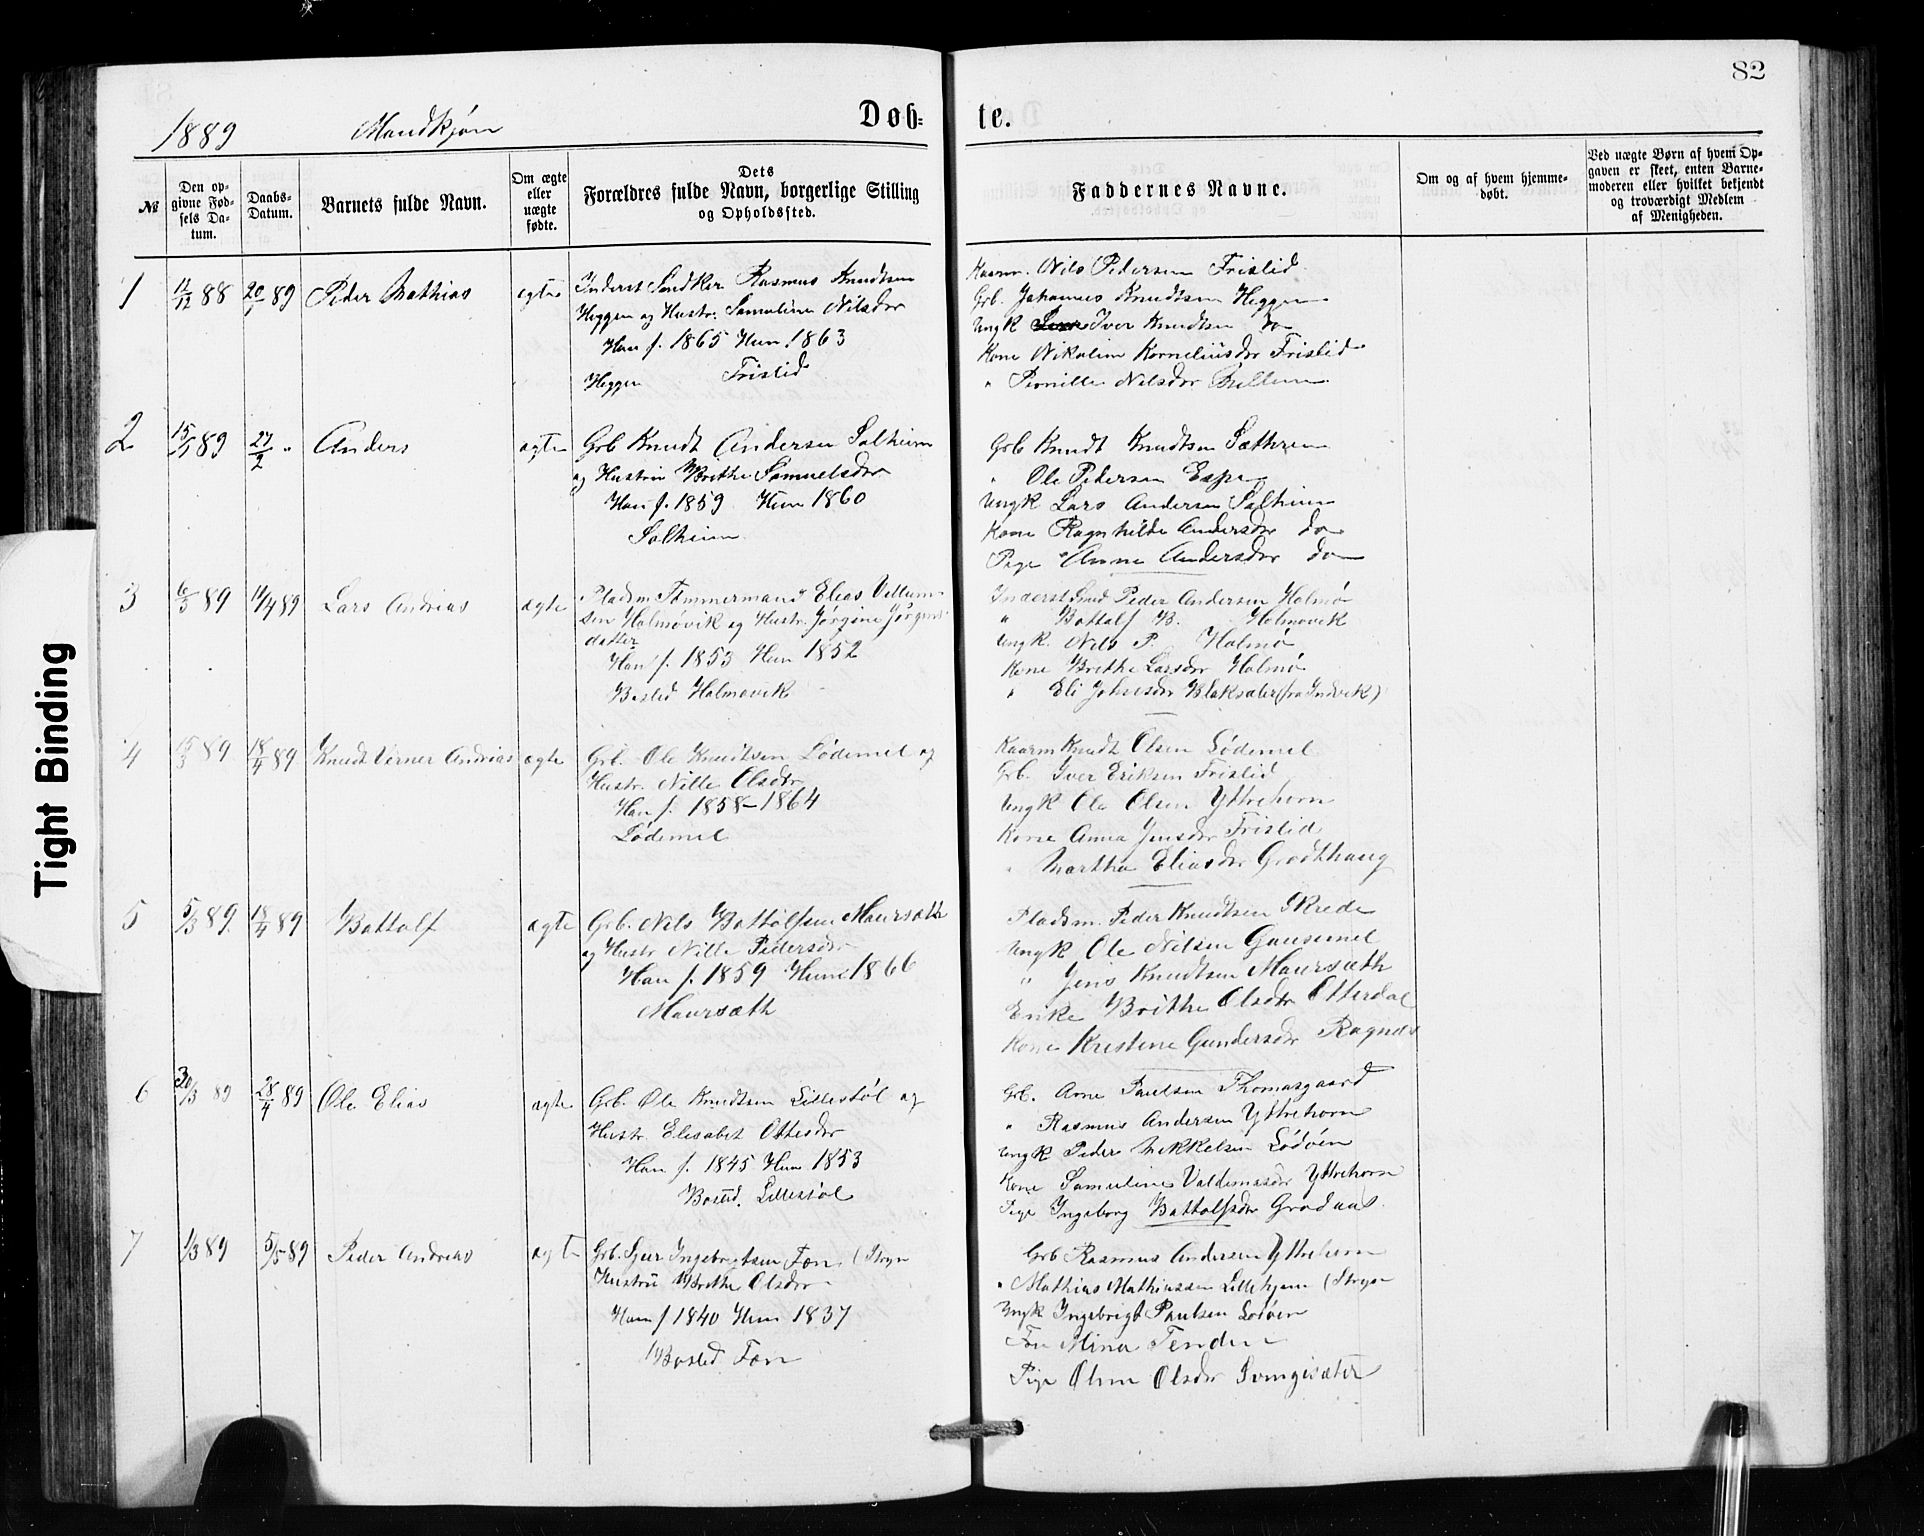 82
1889 Mandkjøn Døb- te.
№ Den opgivne Fødsels Datum. Daabs-Datum. Barnets fulde Navn. Om ægte eller uægte fødte. Dets Forældres fulde Navn, borgerlige Stilling og Opholdssted. Faddernes Navne. Om og af hvem hjemmedøbt. Ved uægte Børn af hvem Opgaven er skeet, enten Barnemoderen eller hvilket bekjendt og troværdigt Medlem af Menigheden.
1 12/12 88 20/1 89 Peder Mathias ægte Inderst Snedker Rasmus Knudtsen
Heggen og Hustr: Samueline Nilsdr
Han f. 1865 Hun 1863
Heggen Fristid
Kaarm. Nils Pedersen Fristid
Grb. Johannes Knudtsen Heggen
Ungk Iver Knudtsen do
Kone Nikoline Korneliusdr Fristid
" Pernille Nilsdr
2 15/1 89 24/2 " Anders ægte Grb Knudt Andersen Solheim
og Hustru Brithe Samuelsdr
Han f. 1859 Hun 1860
Solheim
Grb Knudt Knudtsen Sæthren
" Ole Pedersen Espe
Ungk Lars Andersen Solheim
Kone Ragnhilde Andersdr do
Pige Anne Andersdr do
3 6/3 89 14/4 89 Lars Andrias ægte Pladsm Tømmermand Elias Villum-
sen Holmøvik og Hustr. Jørgine Jørgens-
datter
Han f. 1853 Hun 1852
Bosted Holmøvik
Inderst Smed Peder Andersen Holmø
" Bottolf B. Holmøvik
Ungk. Nils P. Holmø
Kone Brithe Larsdr Holmø
" Eli Johnsdr Blaksæter (fra Indvik)
4 15/3 89 18/4 89 Knudt Verner Andrias ægte Grb. Ole Knudtsen Lødemel og
Hustr. Nille Olsdr
Han f. 1858 - 1864
Lødemel
Kaarm Knudt Olsen Lødemel
Grb. Iver Eriksen Fristid
Ungk Ole Olsen Yttrehorn
Kone Anna Jensdr Fristid
" Martha Eliasdr Grodthaug
5 5/3 89. 18/4 89 Bottolf ægte Grb. Nils Bottolfsen Maursæth
og Hustr Nille Pedersdr
Han f. 1859 Hun 1866
Maursæth
Pladsm. Peder Knudtsen Skrede
Ungk Ole Nilsen Gausemel
" Jens Knudtsen Maursæth
Enke Brithe Olsdr Otterdal
Kone Kristine Gundersdr
6 30/3 89 28/4 89 Ole Elias ægte Grb. Ole Knudtsen Lillestøl og
Hustr. Elisabet Ottesdr
Han f. 1845 Hun 1853
Bosted. Lillestøl
Grb. Arne Paulsen Thomasgaard
" Rasmus Andersen Yttrehorn
Ungk Peder Mikkelsen Lødøen
Kone Samueline Valdemardr Yttrehorn
Pige Ingeborg Bottolfsdr Grodaas.
7 1/3 89 5/5 89 Peder Andreas ægte Grb. Sjur Ingebrigtsen Fon (Stryn
Hustru Brithe Olsdr
Han f 1840 Hun 1837
Bosted Fon
Grb Rasmus Andersen Yttrehorn
" Mathias Mathiassen (Stryn
Ungk Ingebrigt Paulsen Lodøen
Mina Tenden
Pige Oline Olsdr
Tight Binding